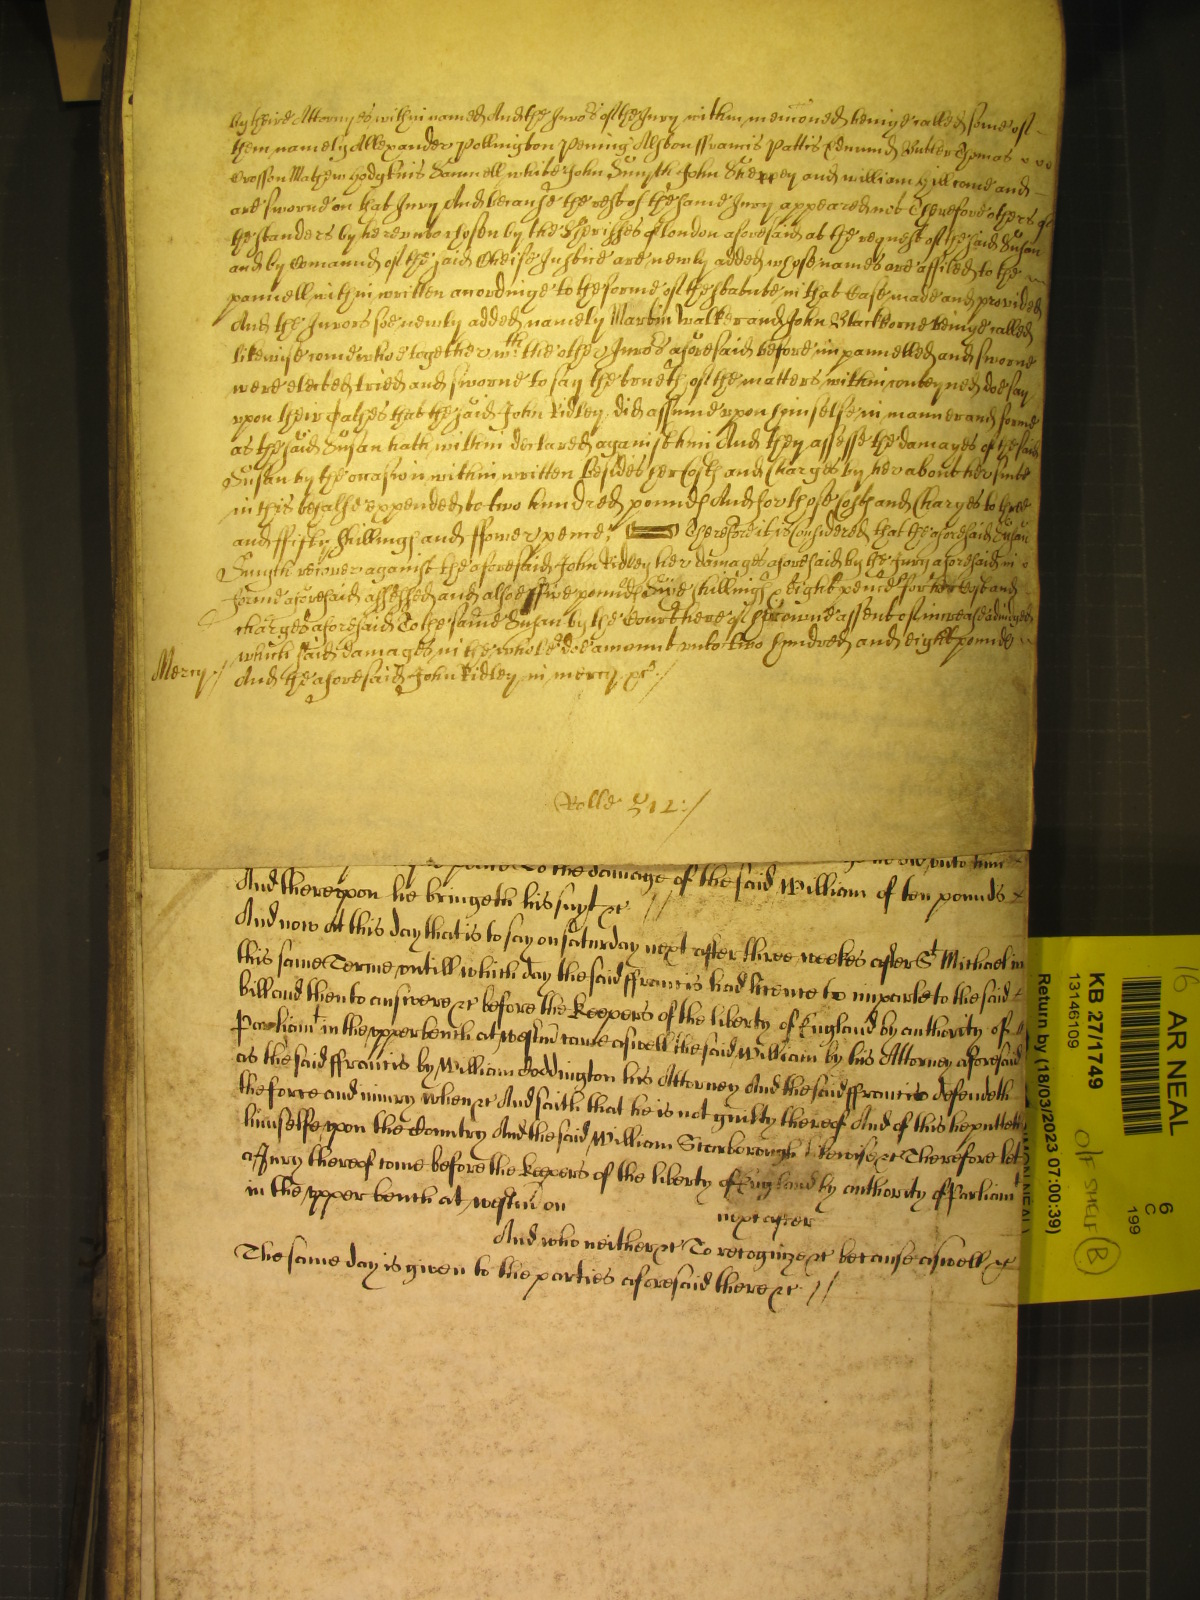 by theire Attornyes within named And the Juro's of the Jury within mencioned beinge called some of
them namely Allexander Pollington Pening Alston ffrancis Pattis Edmund Butler Thomas
Crosson Mathew Hodgkins Samuell white John Smyth John Sheppey and william Gillcome and
are sworne on that Jury And because the rest of the same Jury appeared not Therefore others of
the standers by hereunto chosen by the Sheriffes of London aforesaid at the request of the said Susan
and by Comaund of the said Cheife Justice are newly added whose names are affiled to the
pannell within written accordinge to the forme of the statute in that Case made and provided
And the Jurors soe newly added namely Martin Walker and John Blackborne beinge called
likewise come whoe together wth the other Juro's aforesaid before impannelled and sworne
were elected tried and sworne to say the trueth of the matters within conteyned doe say
upon their Oathes that the said John Ridley did assume upon himselfe in manner and forme
as the said Susan hath within declared against him And they assesse the damages of the said
Susan by the occasion within written besides her Costs and Charges by her about her suite
in this behalfe expended to two hundred pounds And for those Costs and Charges to three
and ffifty shillings and ffower pence; Therefore it is Considered that the aforesaid Susan
Smyth recover against the aforesaid John Ridley her damages aforesaid by the Jury aforesaid in
forme aforesaid assessed and alsoe ffive pounds Sixe shillings & eight pence for her Costs and
charges aforesaid To the same Susan by the Court here of her owne assent of increase adiudged
which said damages in the whole doe amount unto two hundred and eight pounds
Mercy:/ And the aforesaid John Ridley in mercy &c:/
Rolle 512:/
To the damage of the said William of ten pounds
And thereupon he bringeth his suyt &c //
And now at this day that is to say on saturday next after three weekes after St Michael in
this same Terme untill which day the said ffrancis had licence to imparle to the said
bill and then to answere &c before the Keepers of the liberty of England by authority of
Parliamt in the upper bench at westm came aswell the said William by his Attorney aforesaid
as the said ffrancis by William Doddington his Attorney And the said ffrancis defendeth
the force and iniury when &c And saith that he is not guilty thereof And of this he putteth
himselfe upon the Country And the said William Scarborough likewise &c Therefore let
a Jury thereof come before the Keepers of the liberty of England by authority of Parliamt
in the upper bench at westm on next after
And who neither &c To recognize &c because aswell &c
The same day is given to the parties aforesaid there &c //
16 AR NEAL
KB 27/1749
13146109
Return by (18/03/2023 07:00:39)
O/F SHELF B
6
C
199